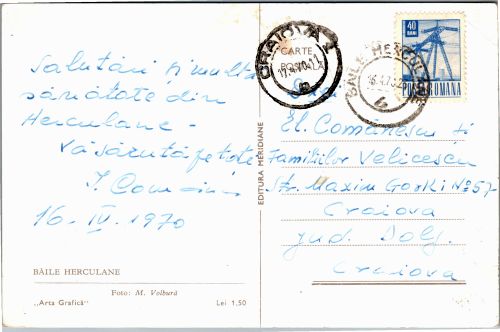 Salutări și multă
sănătate din
Herculane -
Vă sărută pe toți
16. IV. 1970
BĂILE HERCULANE
Foto: M. Volbură
„Arta Grafică”
Lei 1,50
EDITURA MERIDIANE
CARTE
POȘTALĂ
CRAIOVA
BĂILE HERCULANE
40
BANI
POSTA ROMANA
El. Comănescu și
Familiilor Velicescu
Str. Maxim Gorki No 57
Craiova
jud. Dolj.
Craiova